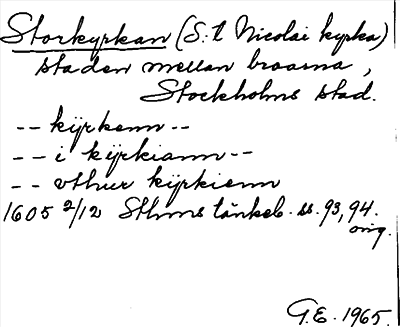 Storkyrkan (S:t Nicolai kyrka)
staden mellan broarna,
Stockholms stad.
-- kÿrkenn --
-- i kÿrkiann --
-- vthur kÿrkienn
1605 2/12 Sthms tänkeb. ss. 93, 94.
orig.
G.E. 1965.